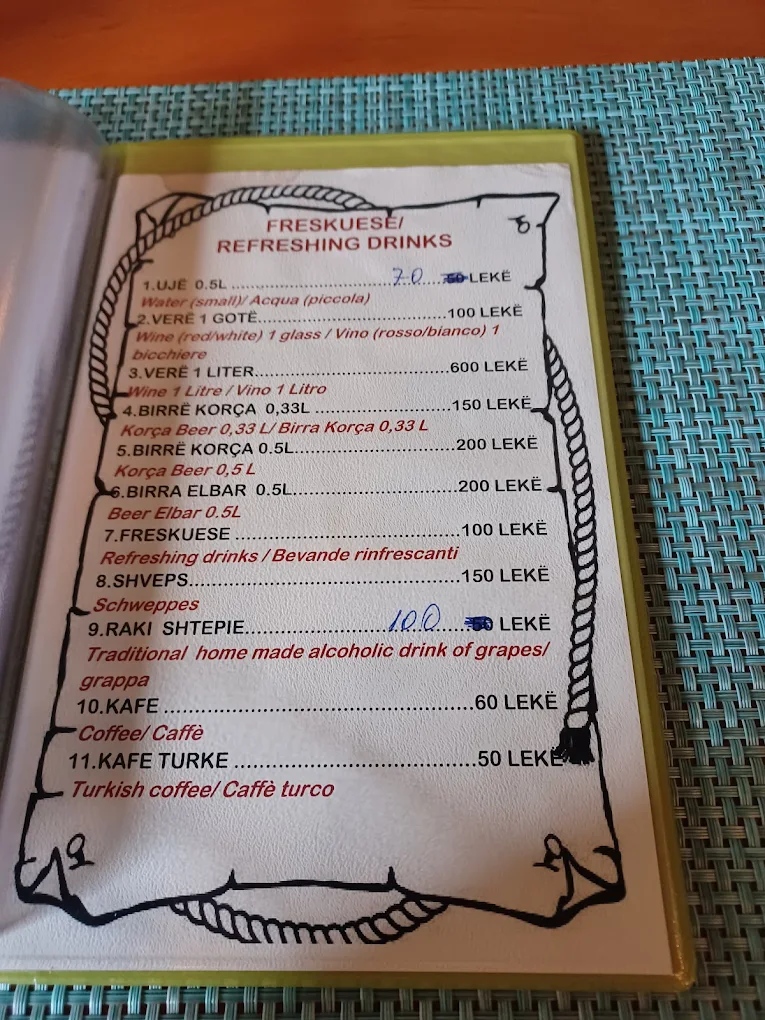 FRESKUESE/
REFRESHING DRINKS
1.UJË 0.5L ........................................ 70 LEKË
Water (small)/ Acqua (piccola)
2.VERË 1 GOTË........................................100 LEKË
Wine (red/white) 1 glass / Vino (rosso/bianco) 1
bicchiere
3.VERË 1 LITER...................................600 LEKË
Wine 1 Litre / Vino 1 Litro
4.BIRRË KORÇA 0,33L ........................150 LEKË
Korça Beer 0,33 L/ Birra Korça 0,33 L
5.BIRRË KORÇA 0.5L............................200 LEKË
Korça Beer 0,5 L
6.BIRRA ELBAR 0.5L.............................200 LEKË
Beer Elbar 0.5L
7.FRESKUESE .......................................100 LEKË
Refreshing drinks / Bevande rinfrescanti
8.SHVEPS...............................................150 LEKË
Schweppes
9.RAKI SHTEPIE.......................... 100 LEKË
Traditional home made alcoholic drink of grapes/
grappa
10.KAFE .....................................................60 LEKË
Coffee/ Caffè
11.KAFE TURKE .........................................50 LEKË
Turkish coffee/ Caffè turco